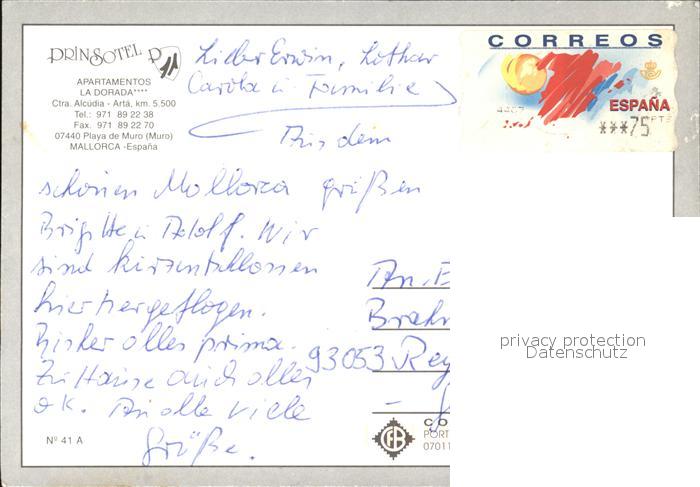 PRINSOTEL
APARTAMENTOS
LA DORADA****
Ctra. Alcúdia - Artá, km. 5.500
Tel.: 971 89 22 38
Fax. 971 89 22 70
07440 Playa de Muro (Muro)
MALLORCA -España)
CORREOS
ESPAÑA
***75 PTS
Lieber Erwin, Lothar
Carola u Familie
Aus dem
schönen Mallorca grüßen
Brigitte u Adolf. Wir
sind kurzentschlossen
hierhergeflogen.
Bisher alles prima.
Zu Hause auch alles
ok. An alle viele
Grüße.
An
93053 Reg
privacy protection
Datenschutz
Nº 41 A
CO
PORT
07011